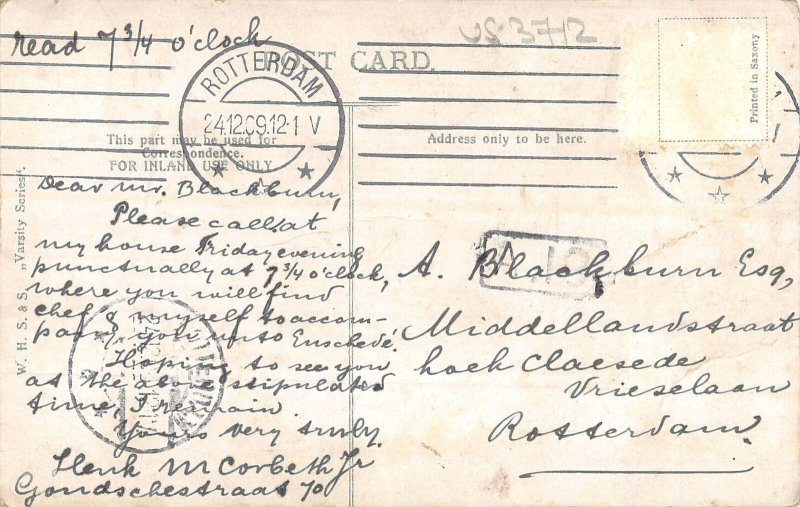 read 7 3/4 o'clock
US-3712
POST CARD.
ROTTERDAM
24.12.09.12-1 V
Printed in Saxony
This part may be used for
Correspondence.
FOR INLAND USE ONLY.
Address only to be here.
W. H. S. & S. „Varsity Series“.
Dear Mr. Blackburn,
Please call at
my house Friday evening
punctually at 7 3/4 o'clock,
where you will find
chef & myself to accom-
pany you unto Enschedé.
Hoping to see you
at the above stipulated
time, I remain
Yours very truly
Henk M Corbeth Jr
Goudschestraat 70
A. Blackburn Esq,
Middellandstraat
hoek Claesede
Vrieselaan
Rotterdam